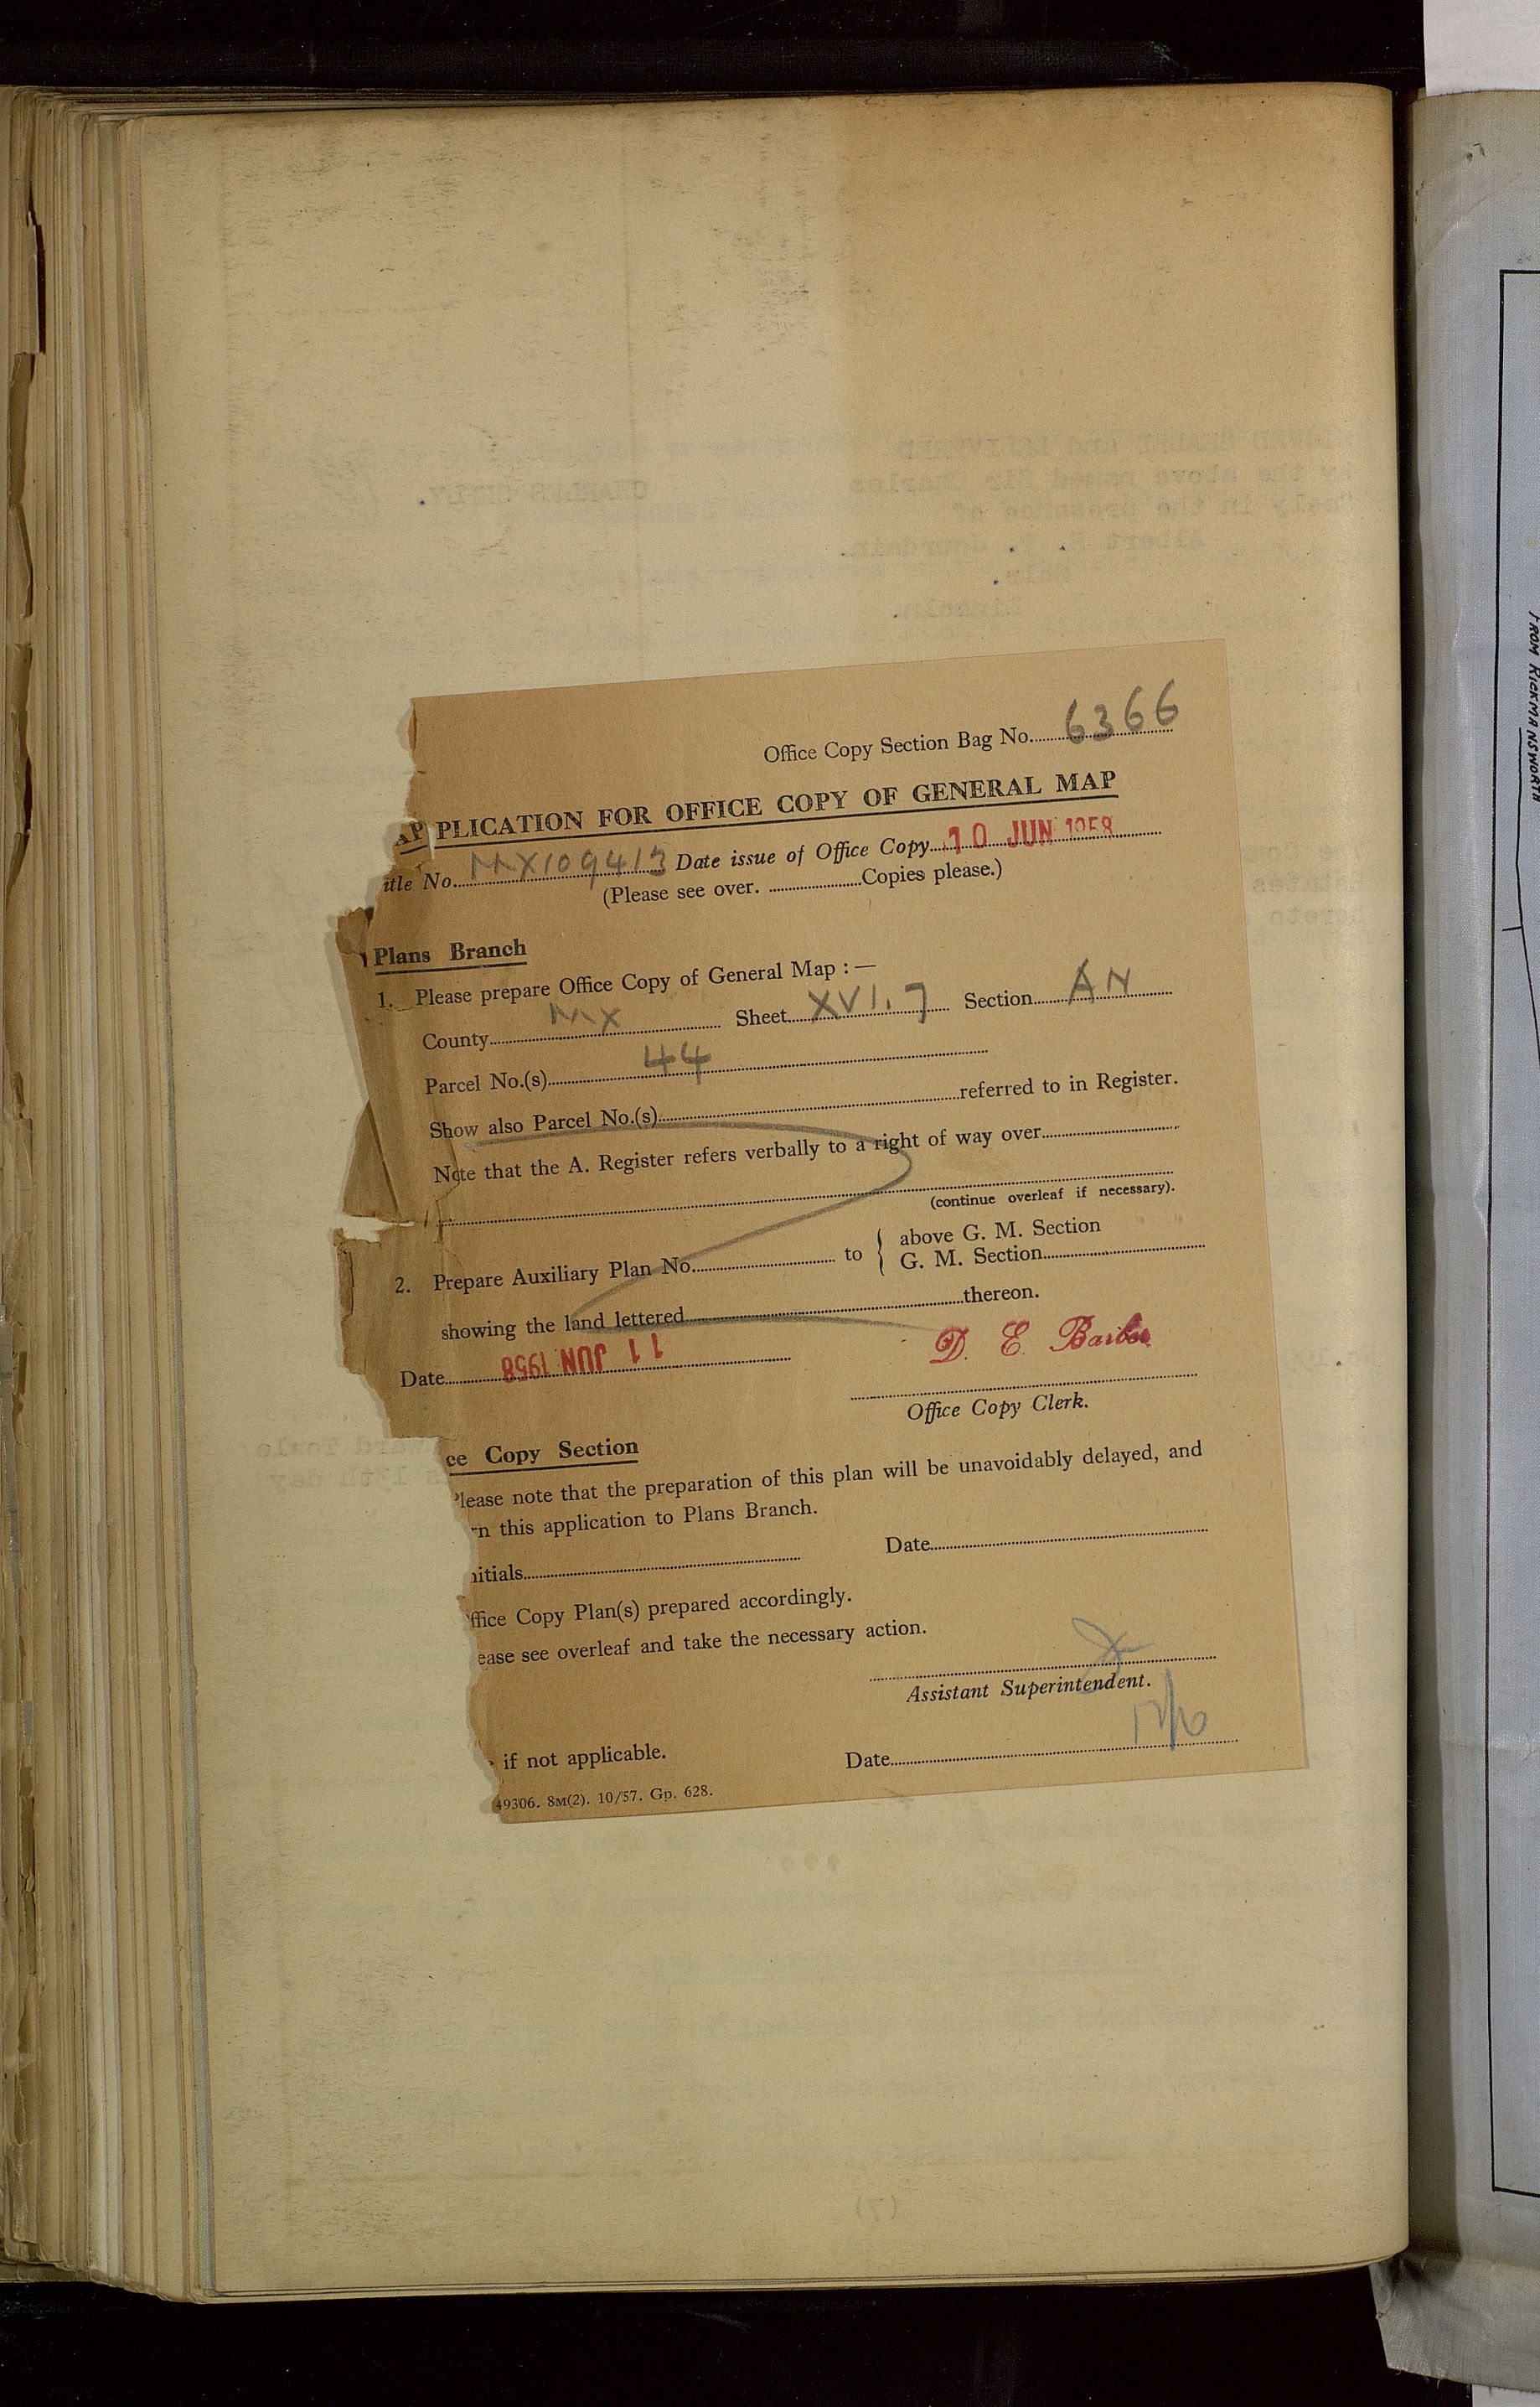 Office Copy Section Bag No. 6366
APPLICATION FOR OFFICE COPY OF GENERAL MAP
itle No. MX109413 Date issue of Office Copy 10 JUN 1958
(Please see over. Copies please.)
Plans Branch
1. Please prepare Office Copy of General Map :—
County MX Sheet XVI.7 Section AN
Parcel No.(s) 44
Show also Parcel No.(s) referred to in Register.
Note that the A. Register refers verbally to a right of way over
(continue overleaf if necessary).
2. Prepare Auxiliary Plan No. to { above G. M. Section
G. M. Section
showing the land lettered thereon.
Date 11 JUN 1958
D. E. Barber
Office Copy Clerk.
ce Copy Section
Please note that the preparation of this plan will be unavoidably delayed, and
rn this application to Plans Branch.
nitials Date
ffice Copy Plan(s) prepared accordingly.
ease see overleaf and take the necessary action.
Assistant Superintendent.
if not applicable.
Date 12/6
49306. 8M(2). 10/57. Gp. 628.
FROM RICKMANSWORTH